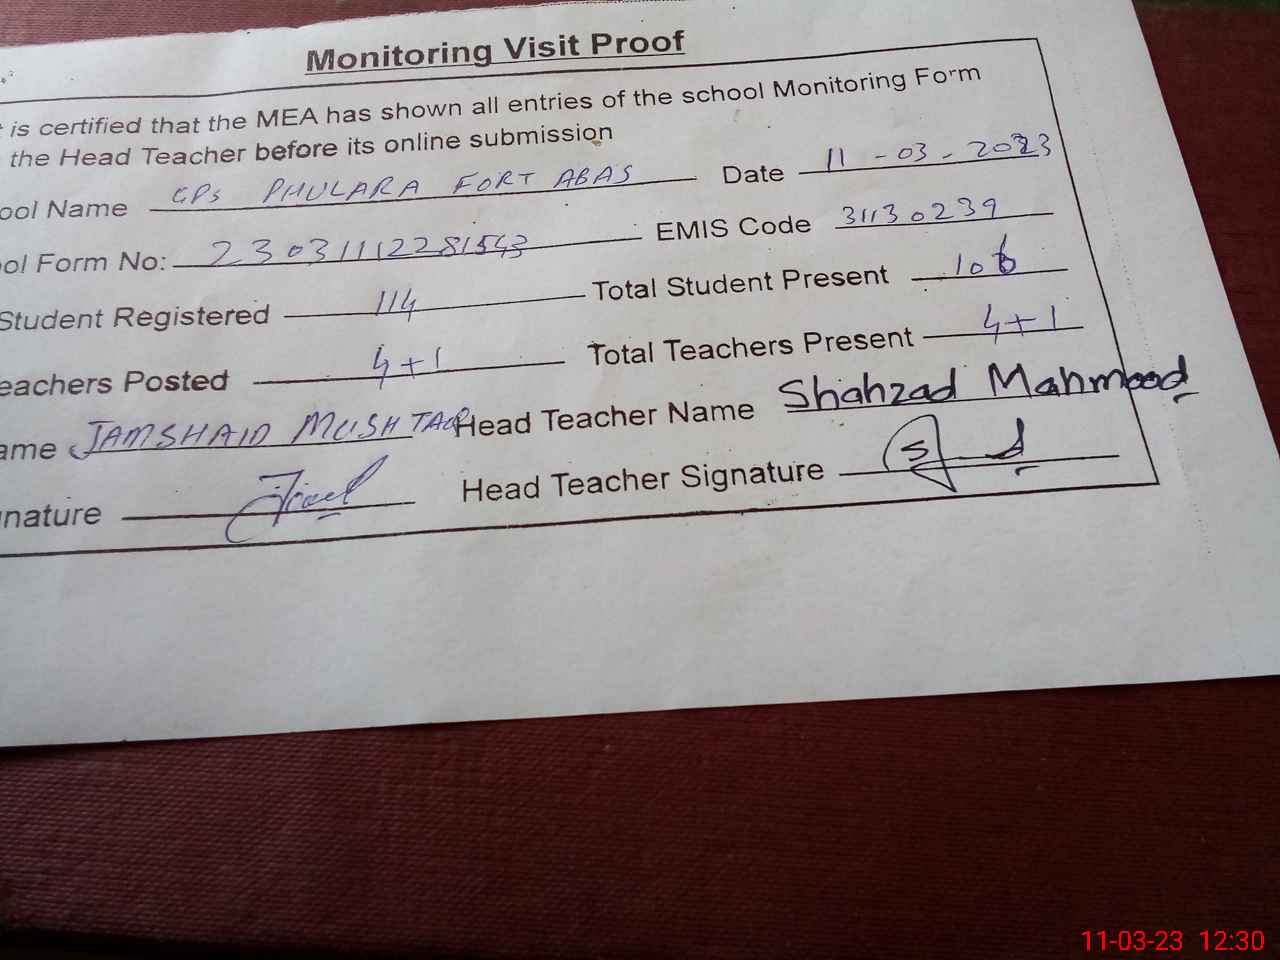 Monitoring Visit Proof
is certified that the MEA has shown all entries of the school Monitoring Form
the Head Teacher before its online submission
ool Name GPS PHULARA FORT ABAS Date 11-03-2023
ol Form No: 23031112281543 EMIS Code 31130239
Student Registered 114 Total Student Present 106
eachers Posted 4+1 Total Teachers Present 4+1
ame JAMSHAID MUSHTAQ Head Teacher Name Shahzad Mahmood
nature Head Teacher Signature
11-03-23 12:30